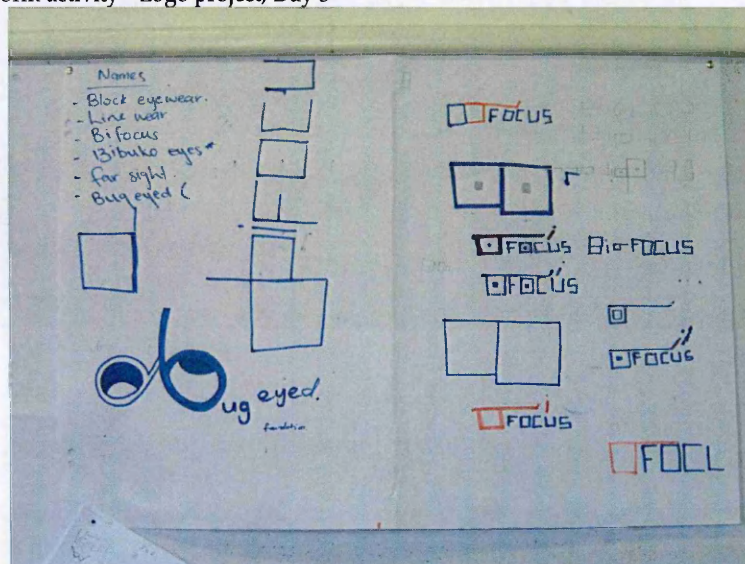 Logo project, Day 3
Names
- Block eyewear.
- Line wear
- Bifocus
- Bibuko eyes*
- far sight.
- Bug eyed (
bug eyed.
FOCUS
FOCUS Bio-FOCUS
FOCUS
FOCUS
FOCUS
FOCL